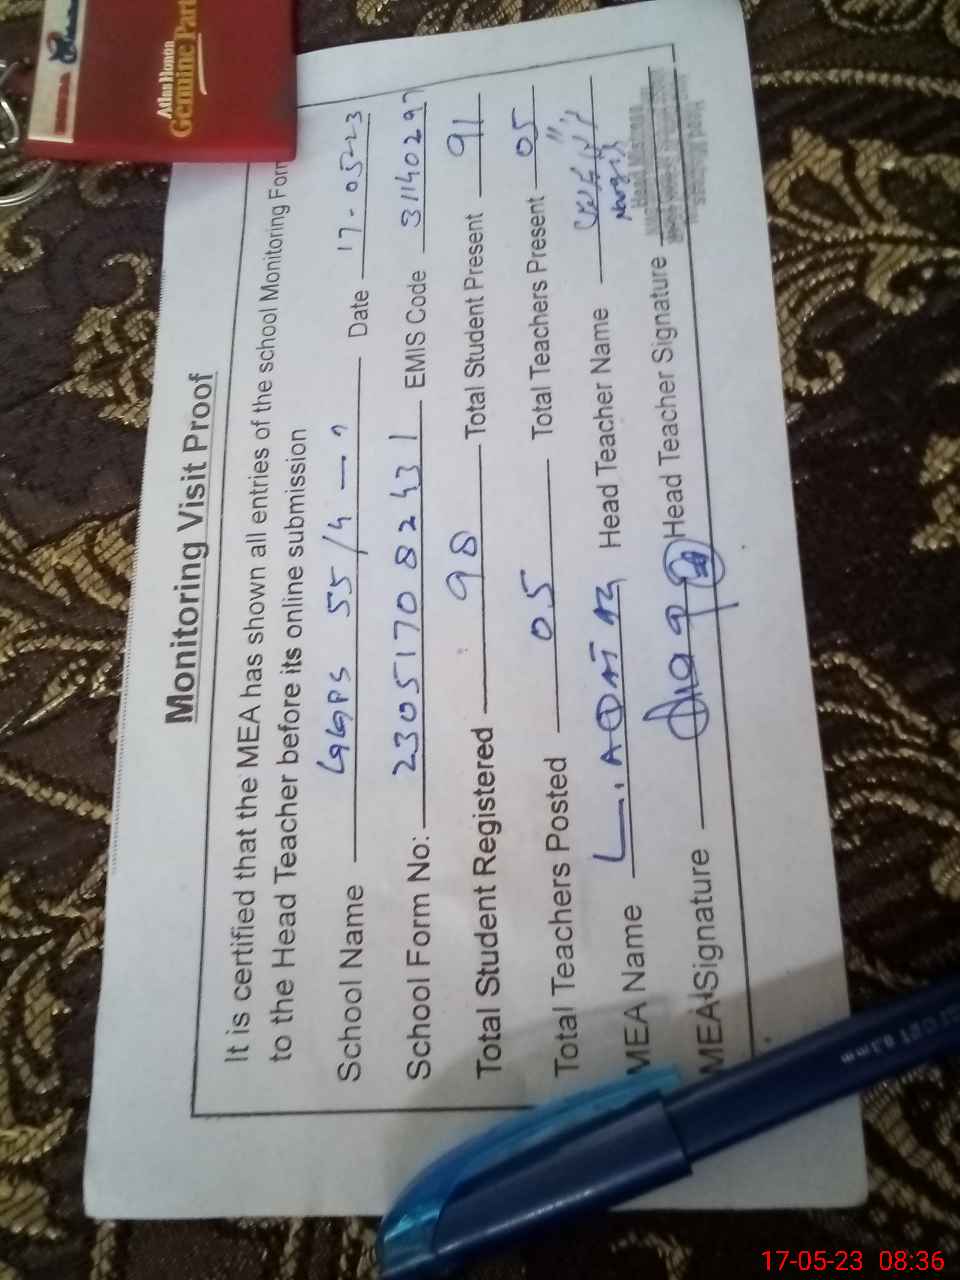 Atlas Honda
Genuine Part
Monitoring Visit Proof
It is certified that the MEA has shown all entries of the school Monitoring Form
to the Head Teacher before its online submission
School Name GGPS 55/4 Date 17-05-23
School Form No: 230517082431 EMIS Code 31140297
Total Student Registered 98 Total Student Present 91
Total Teachers Posted 05 Total Teachers Present 05
MEA Name LIAQAT Head Teacher Name
MEA Signature Head Teacher Signature
Head Mistress
17-05-23 08:36